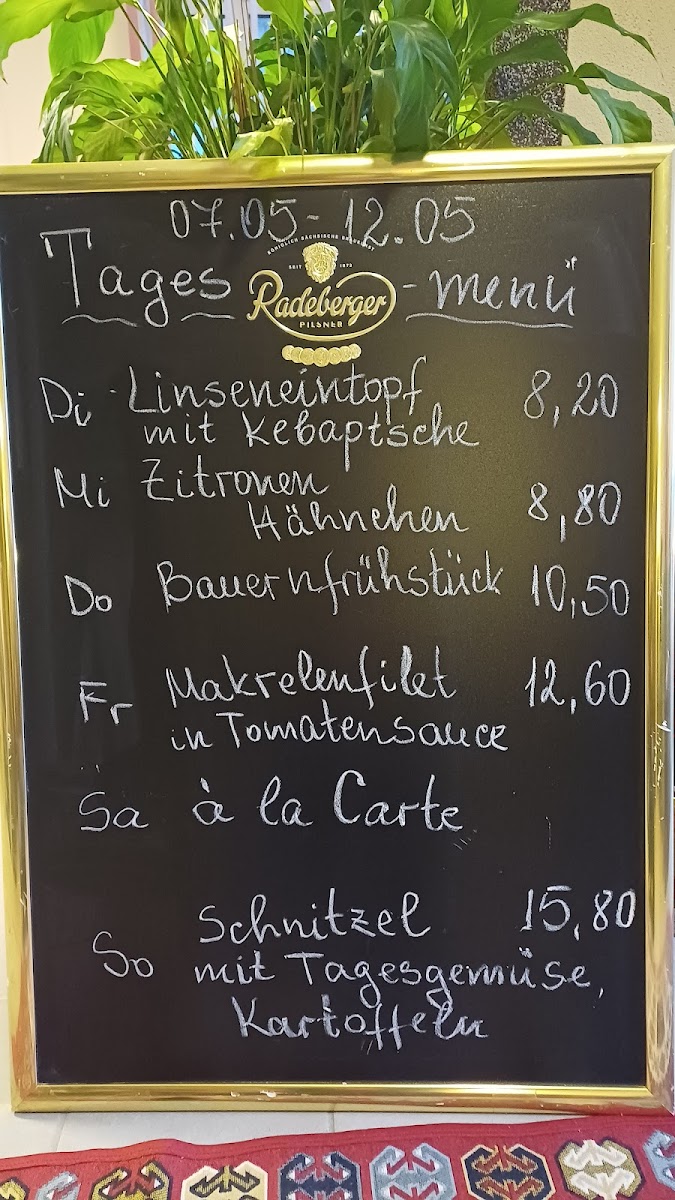 07.05-12.05
KÖNIGLICH SÄCHSISCHE BRAUKUNST
SEIT 1872
Tages Radeberger -menü
PILSNER
Di Linseneintopf 8,20
mit Kebaptsche
Mi Zitronen
Hähnchen 8,80
Do Bauernfrühstück 10,50
Fr Makrelenfilet 12,60
in Tomatensauce
Sa à la Carte
Schnitzel 15,80
So mit Tagesgemüse,
Kartoffeln